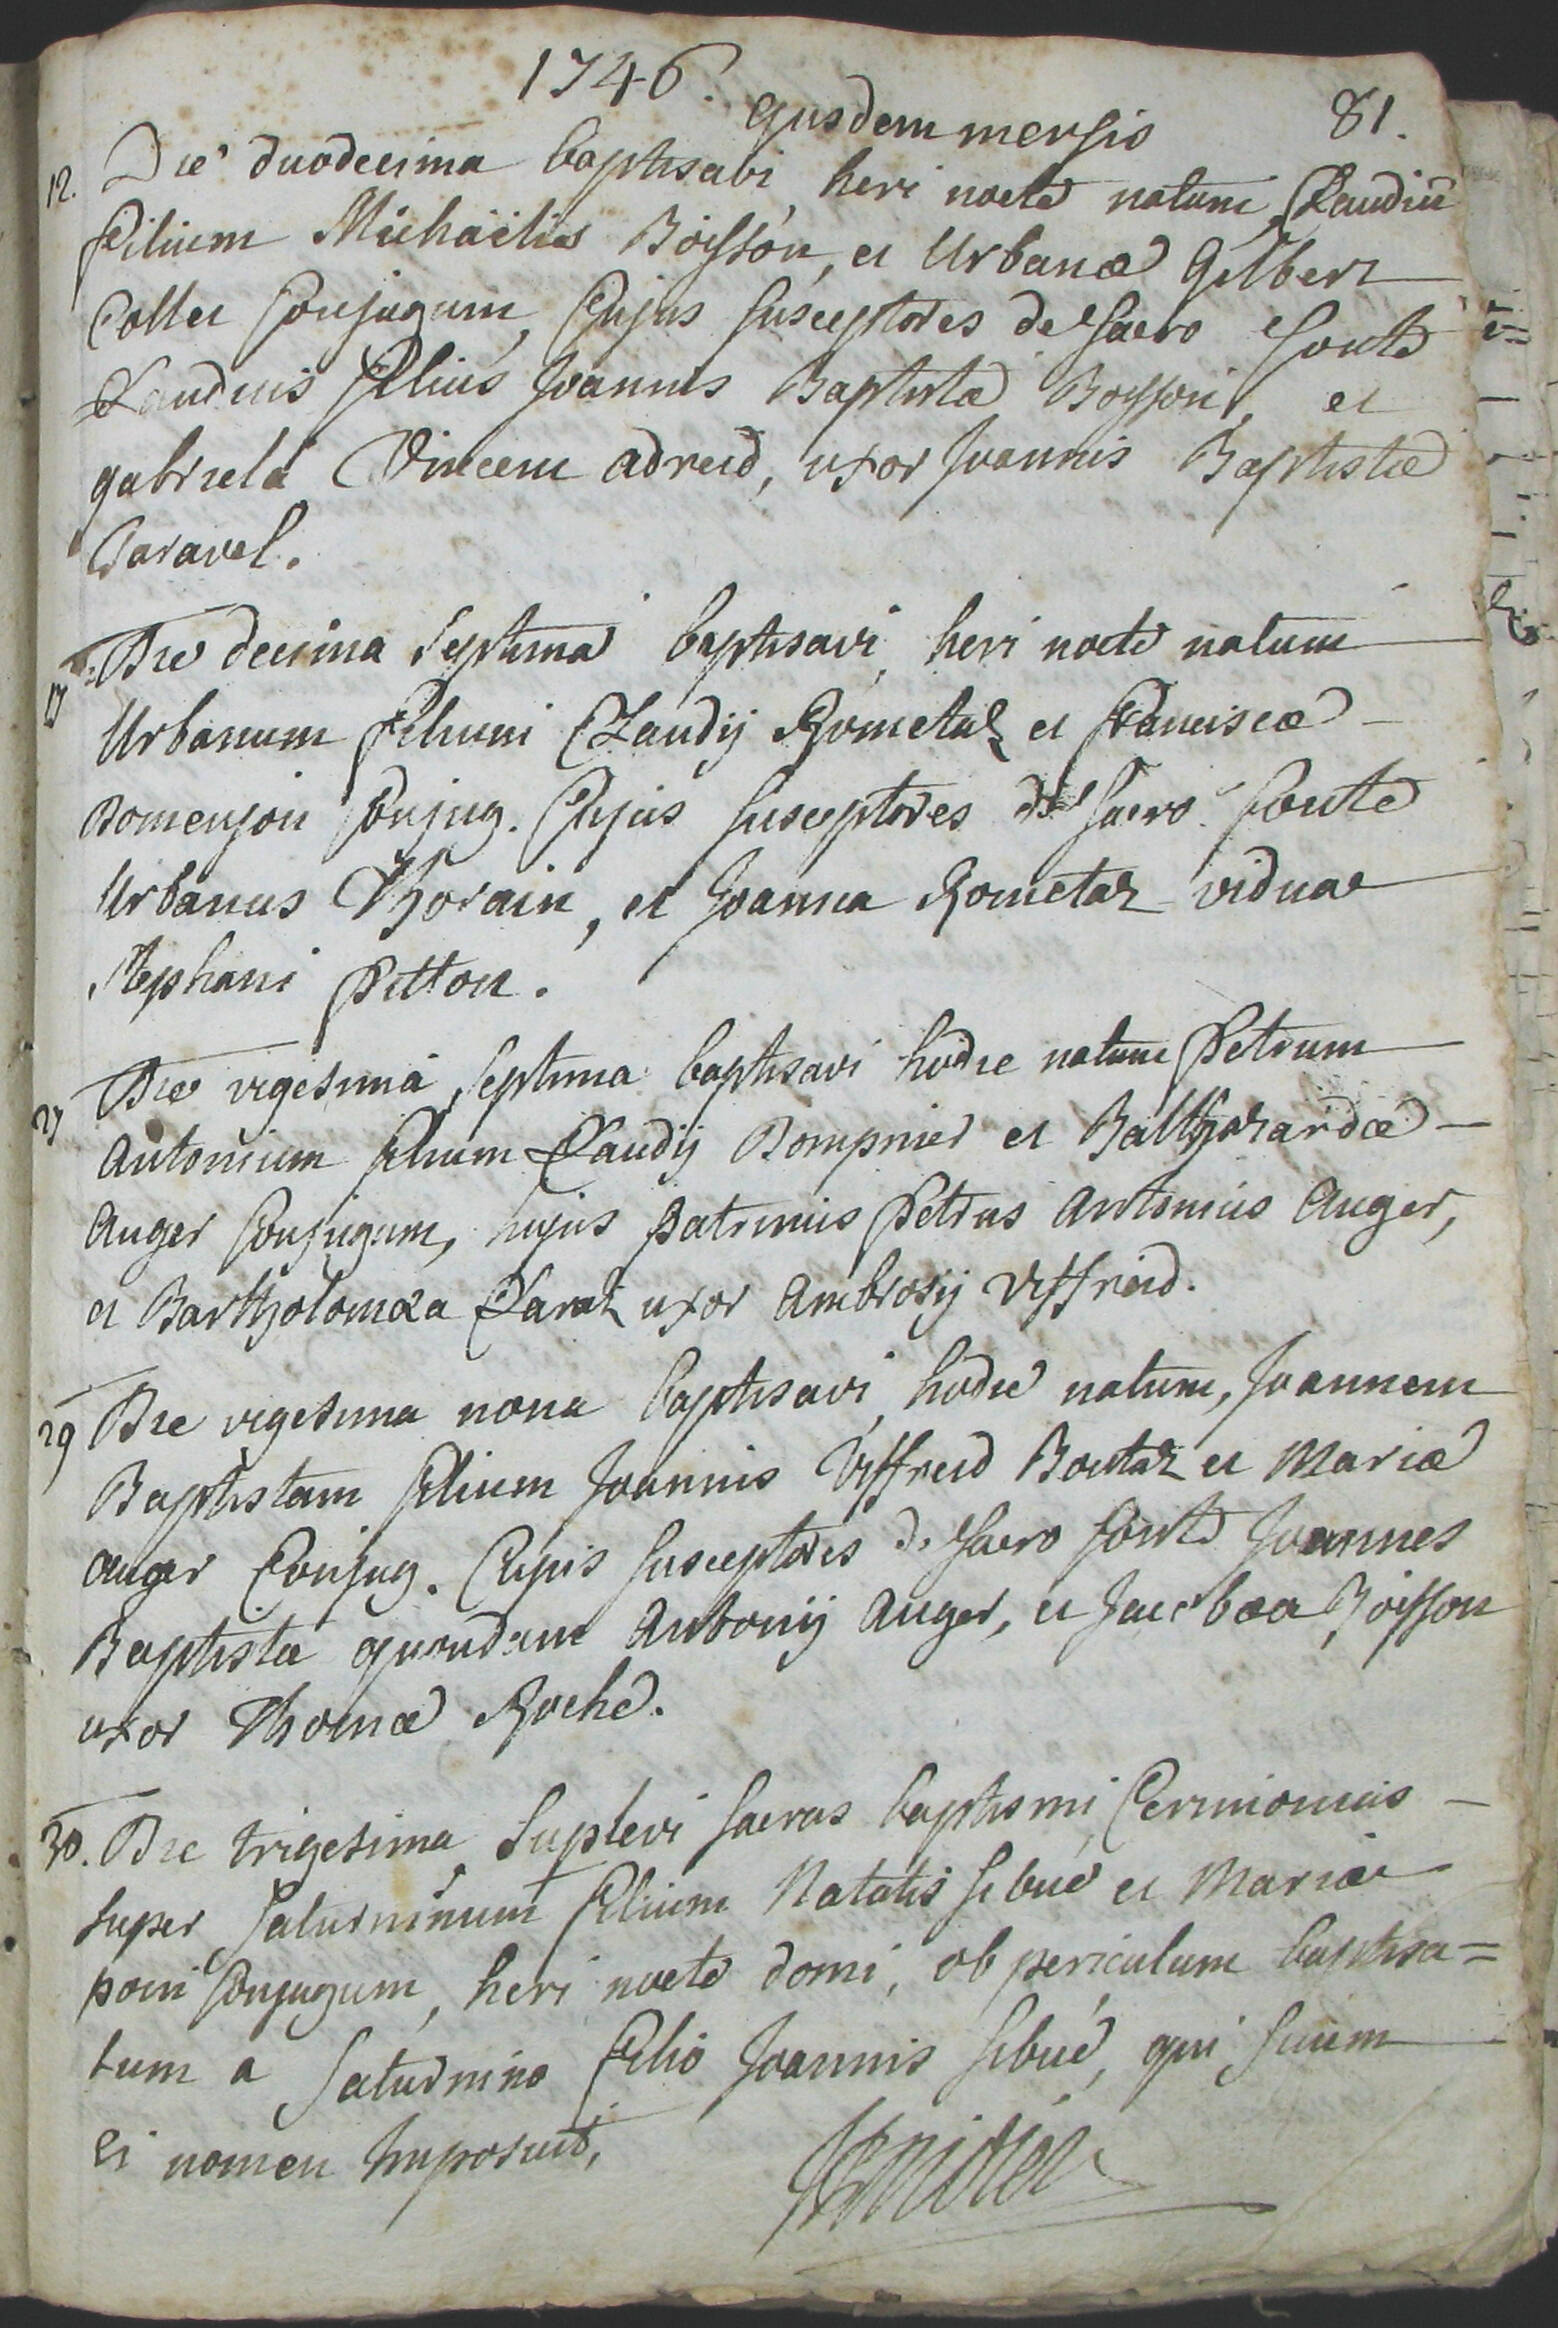 1746. 81.
ejusdem mensis
12. Die duodecima baptisavi, heri nocte natum, Claudiū
filium Michaëlis Boisson, et Urbanæ Gilbert
Collet Conjugum, Cujus susceptores de sacro fonte
Claudius filius Joannis Baptistæ Boisson, et
gabriela Vincent adreid, uxor Joannis Baptistæ
Caravel.
17 Die decima septima baptisavi, heri nocte natum
Urbanum filium Claudij Rometaz et Franciscæ
Domenjon Conjug. Cujus susceptores de sacro fonte
Urbanus Thorain, et Joanna Rometaz vidua
Stephani Pitton.
27 Die vigesima septima baptisavi hodie natum Petrum
Antonium filium Claudij Dompnier et Balthazardæ
Auger Conjugum, hujus patrinus Petrus Antonius Auger,
et Bartholomæa Claraz uxor Ambrosij Viffreid.
29 Die vigesima nona baptisavi, hodie natum, Joannem
Baptistam filium Joannis Viffreid Boutaz et Mariæ
Auger Conjug. Cujus susceptores de sacro fonte Joannes
Baptista quondam Antonij Auger, et Jacobæa Boisson
uxor Thomæ Roche.
30. Die trigesima suplevi sacras baptismi Cerimonias
super Saturninum filium Natalis Sibué et Mariæ
poin Conjugum, heri nocte domi, ob periculum baptisa=
tum a Saturnino filio Joannis Sibué, qui suum
ei nomen Imposuit,